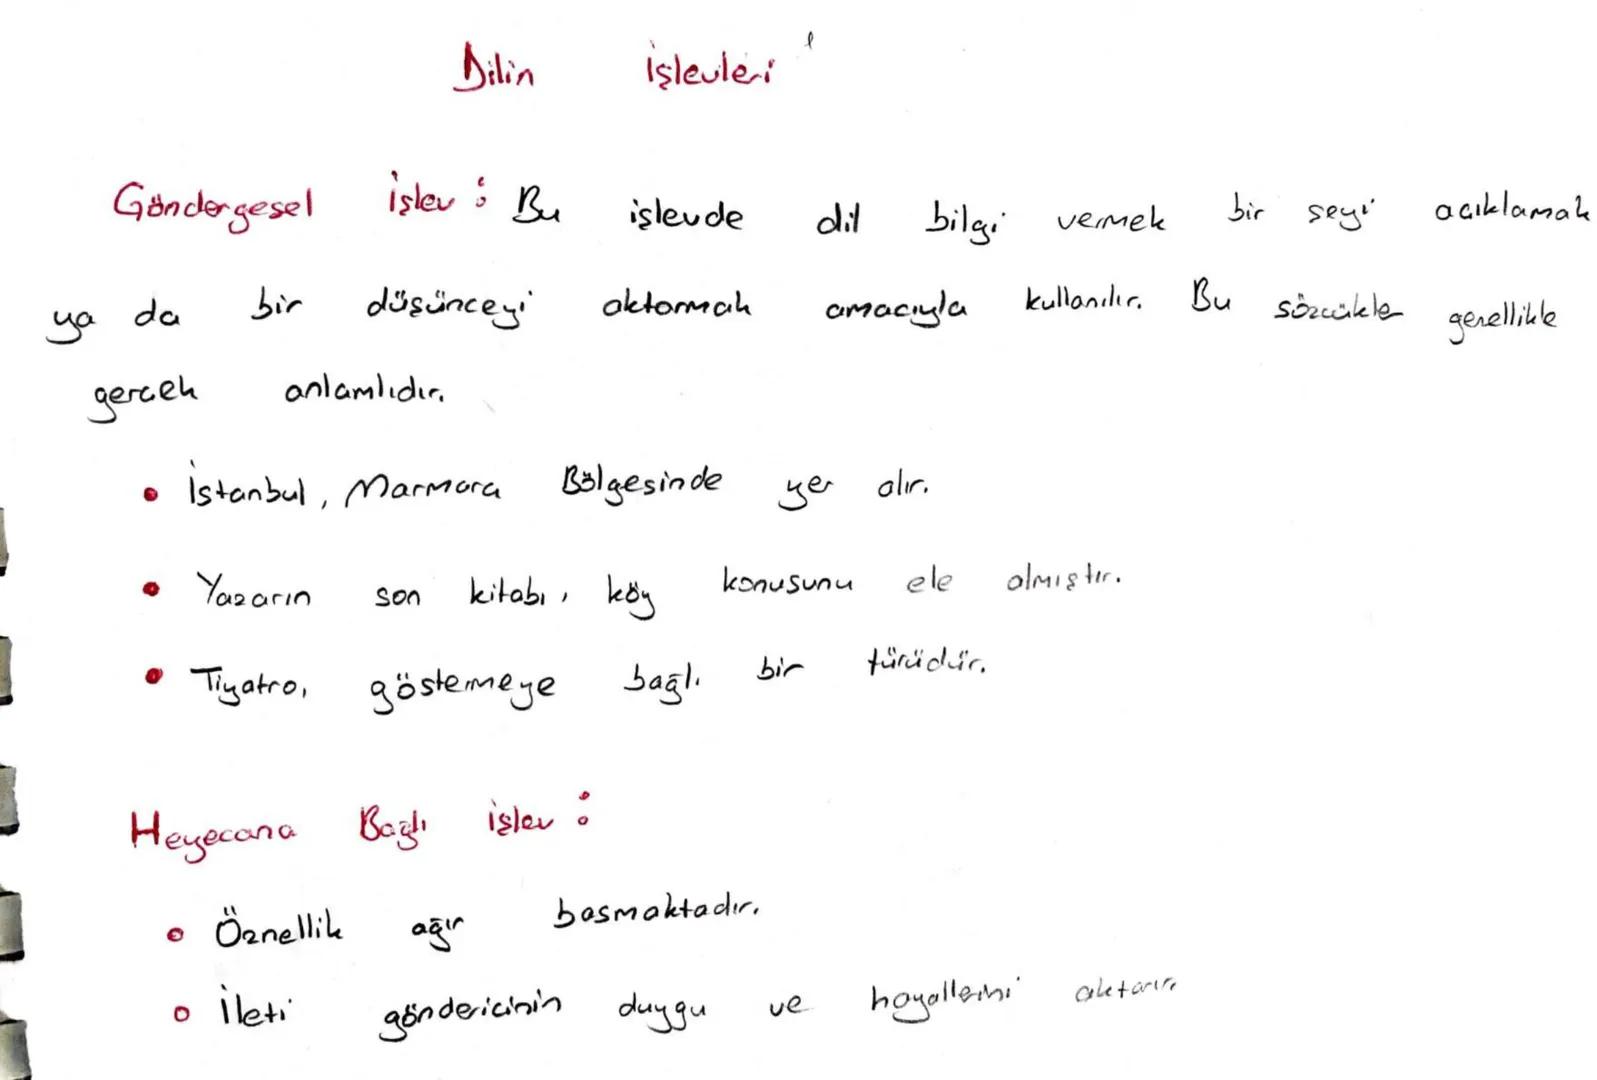 Dilin işlevleri
Göndergesel işlev : Bu işlevde dil bilgi vermek bir seyi acıklamak
ya da bir düşünceyi aktarmak amacıyla kullanılır. Bu sözcükler genellikle
gercek anlamlıdır.
• İstanbul, Marmara Bölgesinde yer alır.
• Yazarın son kitabı, köy konusunu ele almıştır.
• Tiyatro, göstermeye bağlı bir türüdür.
Heyecana Bağlı işlev :
• Öznellik ağır basmaktadır.
• İleti göndericinin duygu ve hayallerini aktarır.